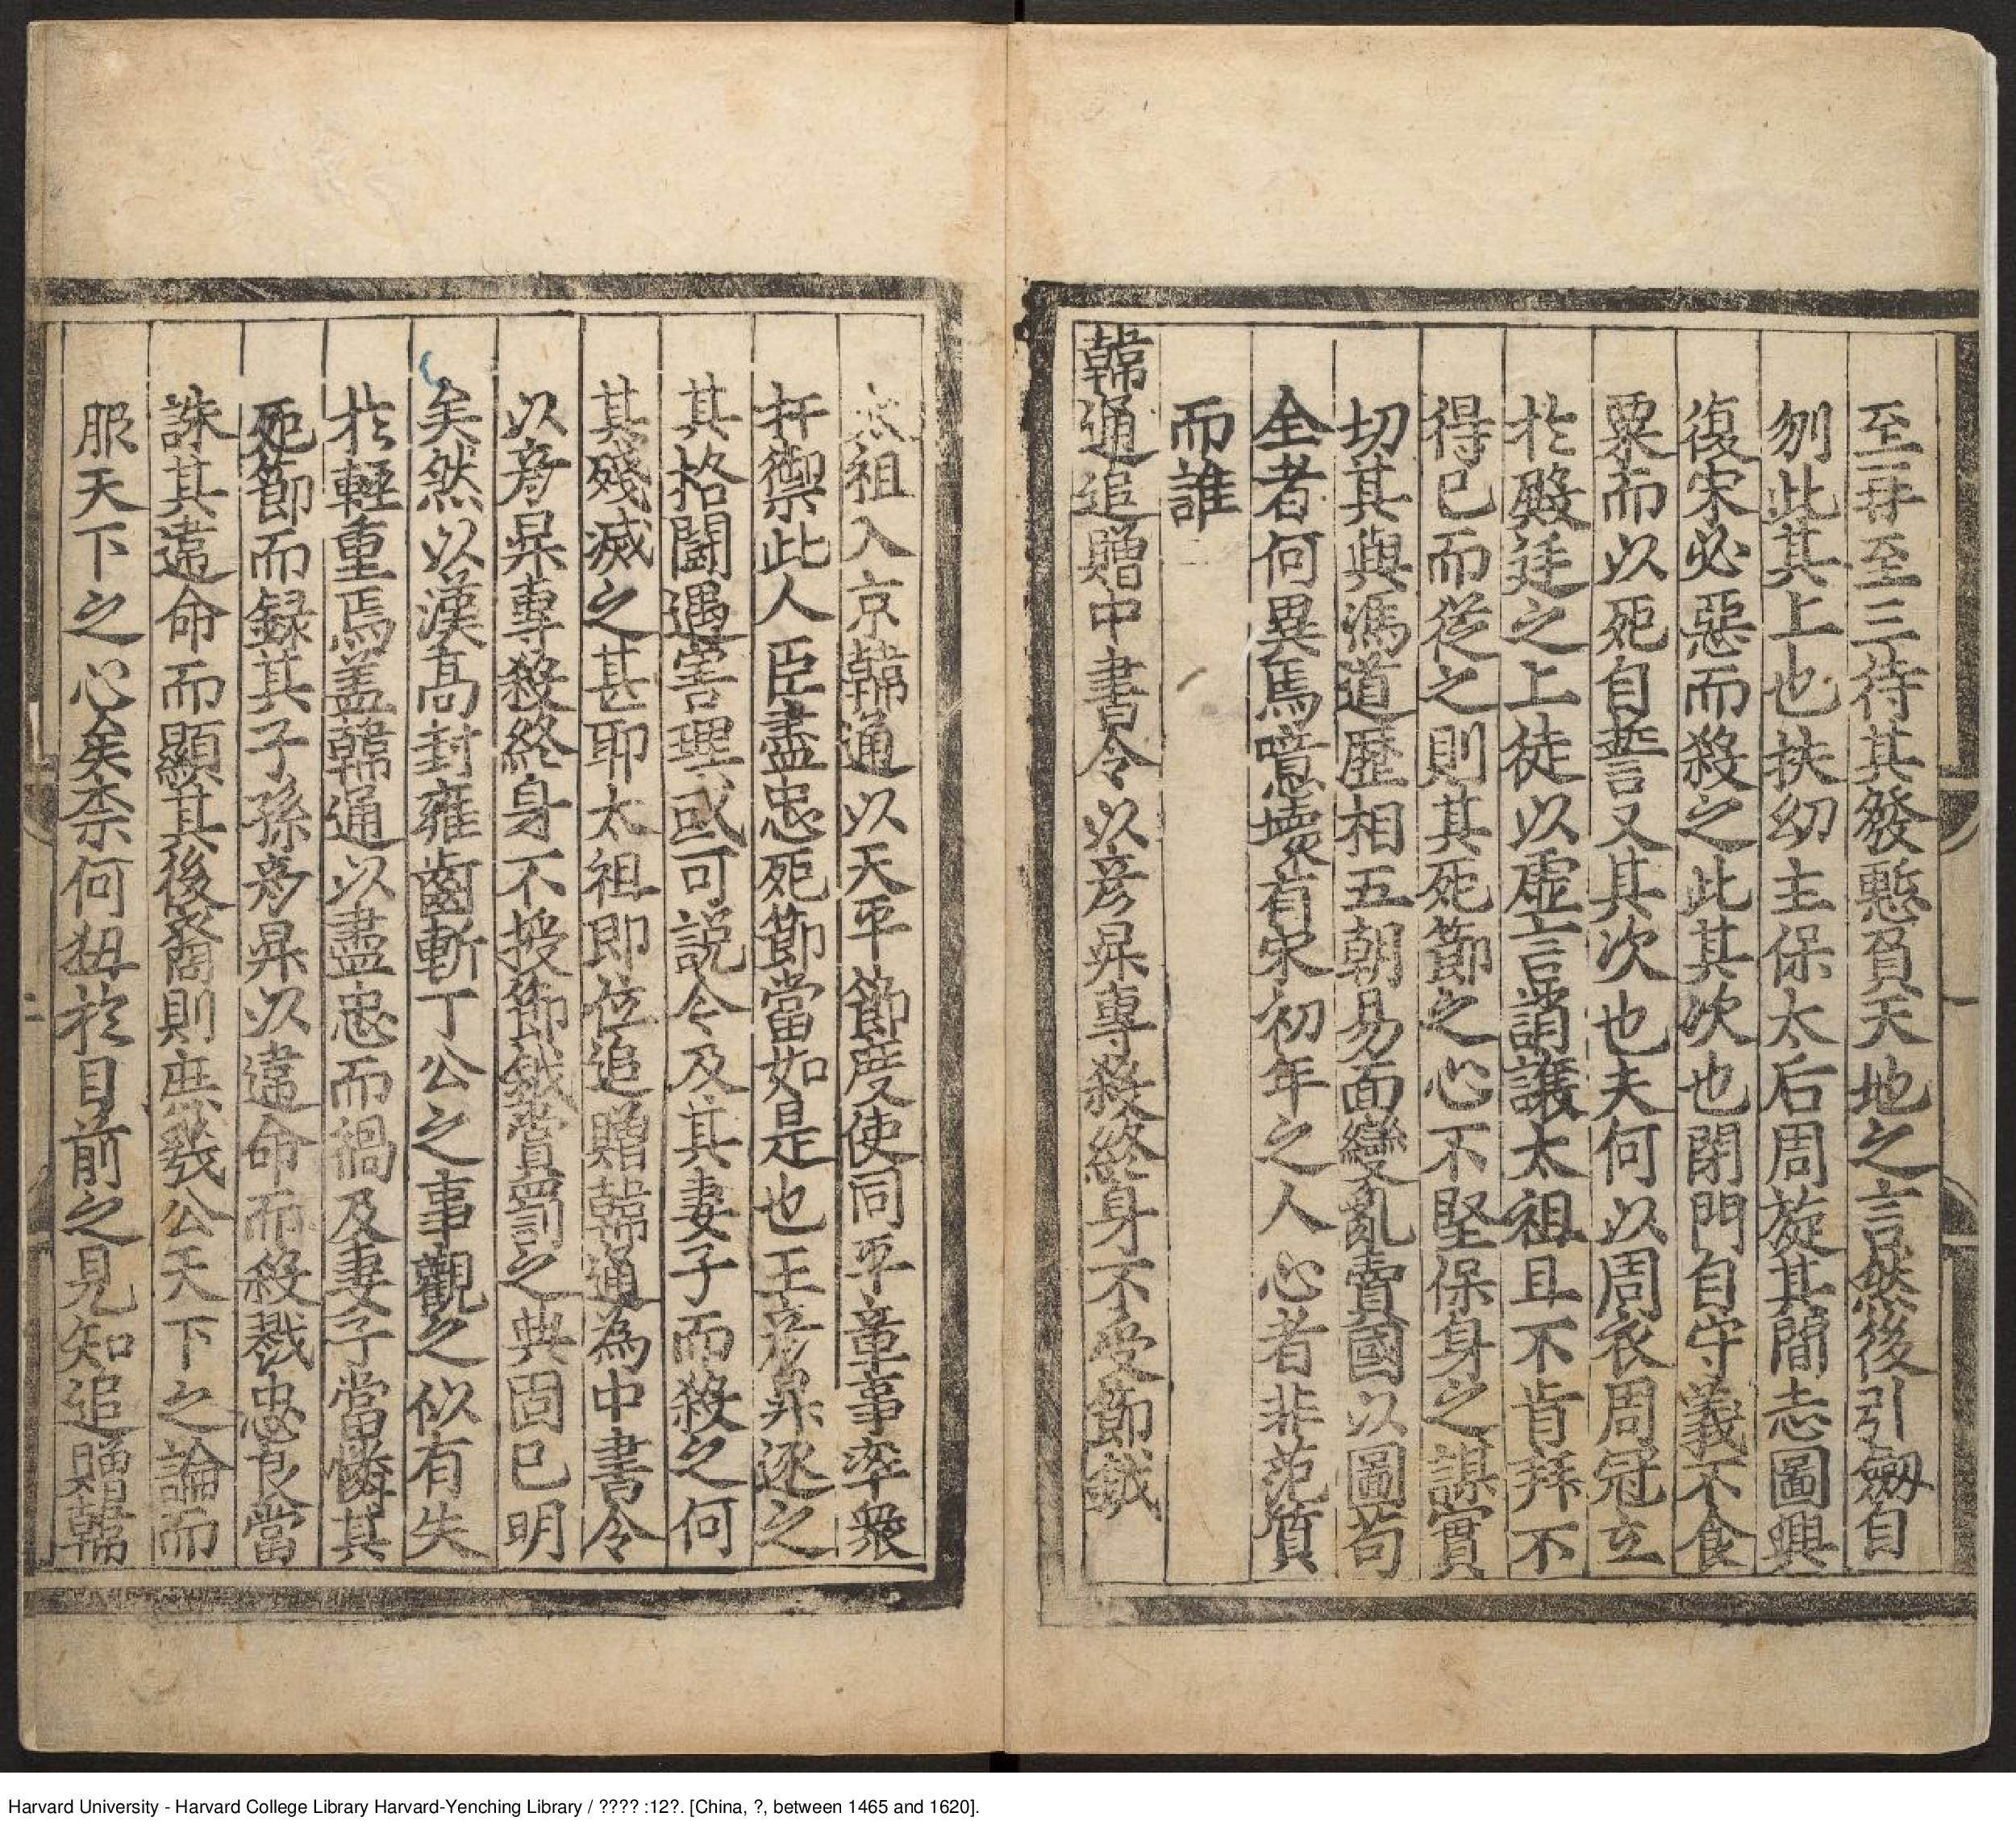 至再至三待其發慙負天地之言然後引劔自
刎此其上也扶幼主保太后周旋其間志圖興
復宋必惡而殺之此其次也閉門自守義不食
粟而以死自誓又其次也夫何以周衣周冠立
於殿廷之上徒以虛言誚讓太祖且不肯拜不
得已而從之則其死節之心不堅保身之謀實
切其與馮道歷相五朝易面變亂賣國以圖苟
全者何異焉噫壞有宋初年之人心者非范質
而誰
韓通追贈中書令以彦昇專殺終身不受節鉞
太祖入京韓通以天平節度使同平章事率衆
扞禦此人臣盡忠死節當如是也王彦昇逐之
其格鬪遇害理或可說今及其妻子而殺之何
其殘滅之甚耶太祖即位追贈韓通為中書令
以彦昇專殺終身不授節鉞賞罰之典固已明
矣然以漢高封雍齒斬丁公之事觀之似有失
於輕重焉盖韓通以盡忠而禍及妻子當憐其
死節而録其子孫彦昇以違命而殺戮忠良當
誅其違命而顯其後裔則庶㡬公天下之論而
服天下之心矣柰何狃於目前之見知追贈韓
二
Harvard University - Harvard College Library Harvard-Yenching Library / ???? :12?. [China, ?, between 1465 and 1620].